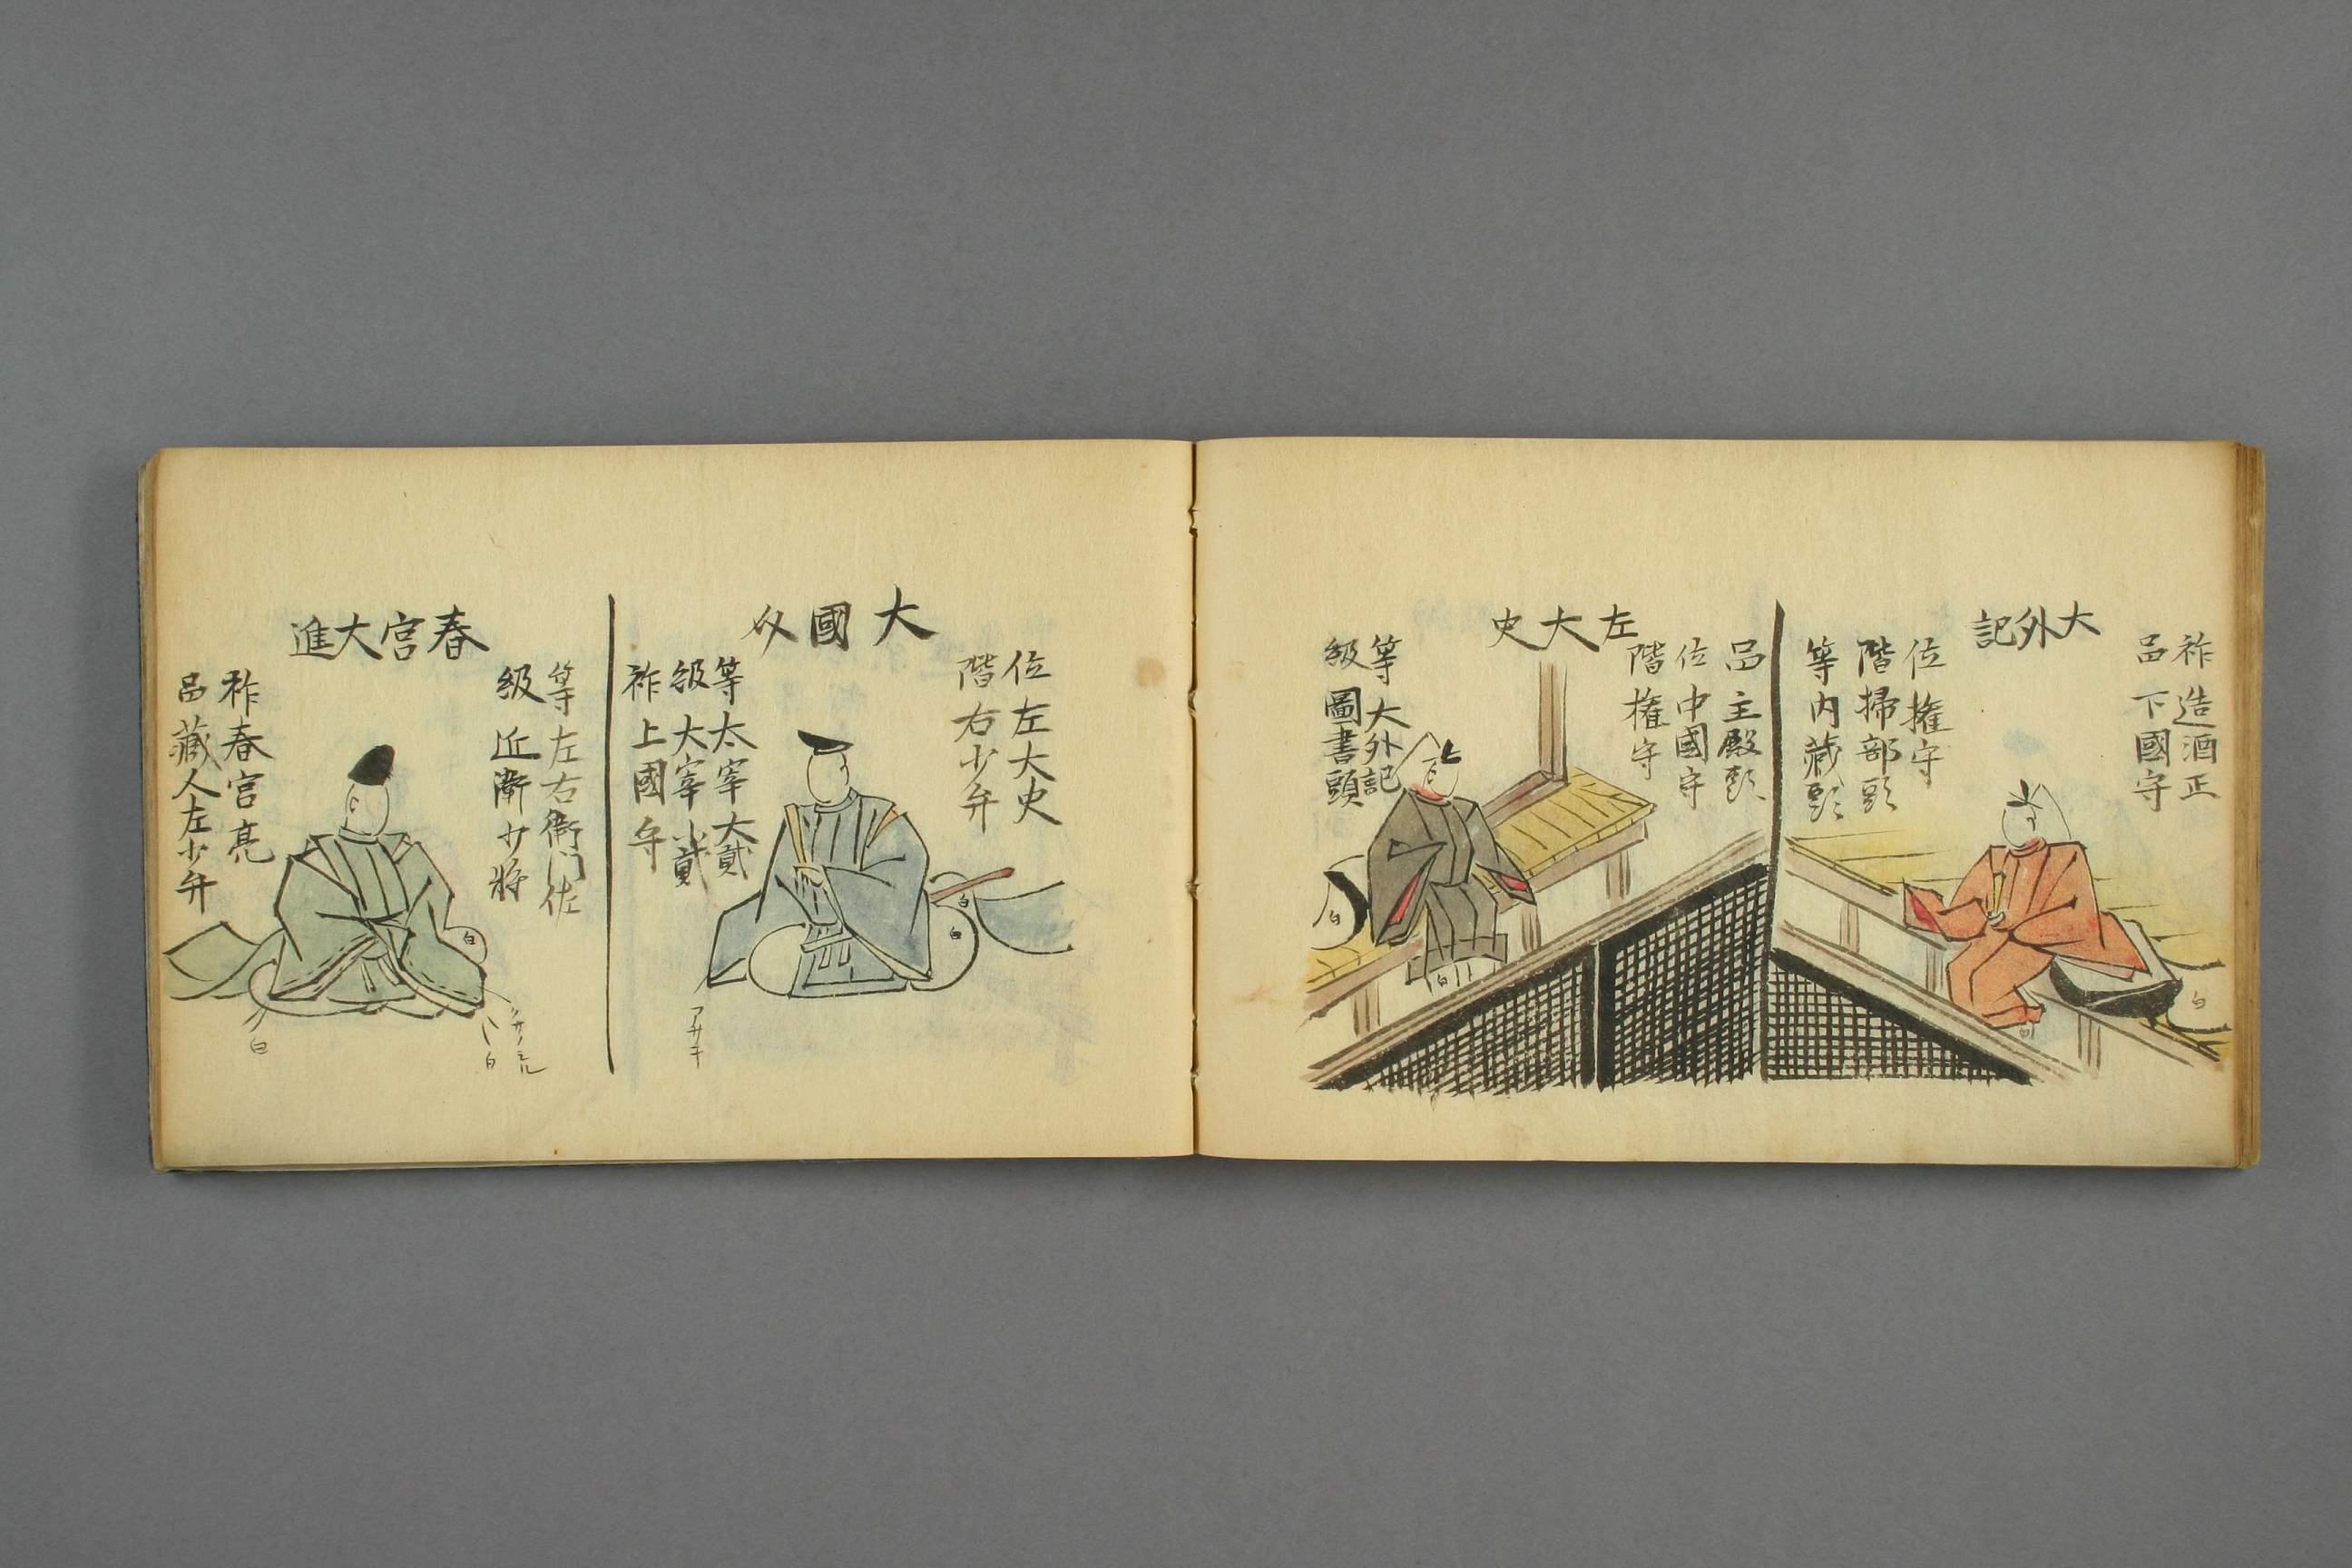 祚 造酒正
品 下國守
大外記
位 権守
階 掃部頭
等 内蔵頭
品 主殿頭
位 中國守
階 権守
左大史
等 大外記
級 圖書頭
白
白
白
白
位 左大史
階 右少弁
大國
等 太宰大貳
級 大宰少貳
祚 上國守
白
白
アサキ
等 左右衛門佐
級 近衛少将
春宮大進
祚 春宮亮
品 蔵人左少弁
白
白
白